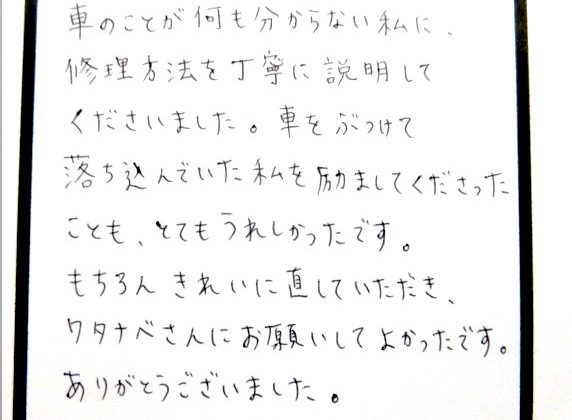 車のことが何も分からない私に、
修理方法を丁寧に説明して
くださいました。車をぶつけて
落ち込んでいた私を励ましてくださった
ことも、とてもうれしかったです。
もちろんきれいに直していただき、
ワタナベさんにお願いしてよかったです。
ありがとうございました。